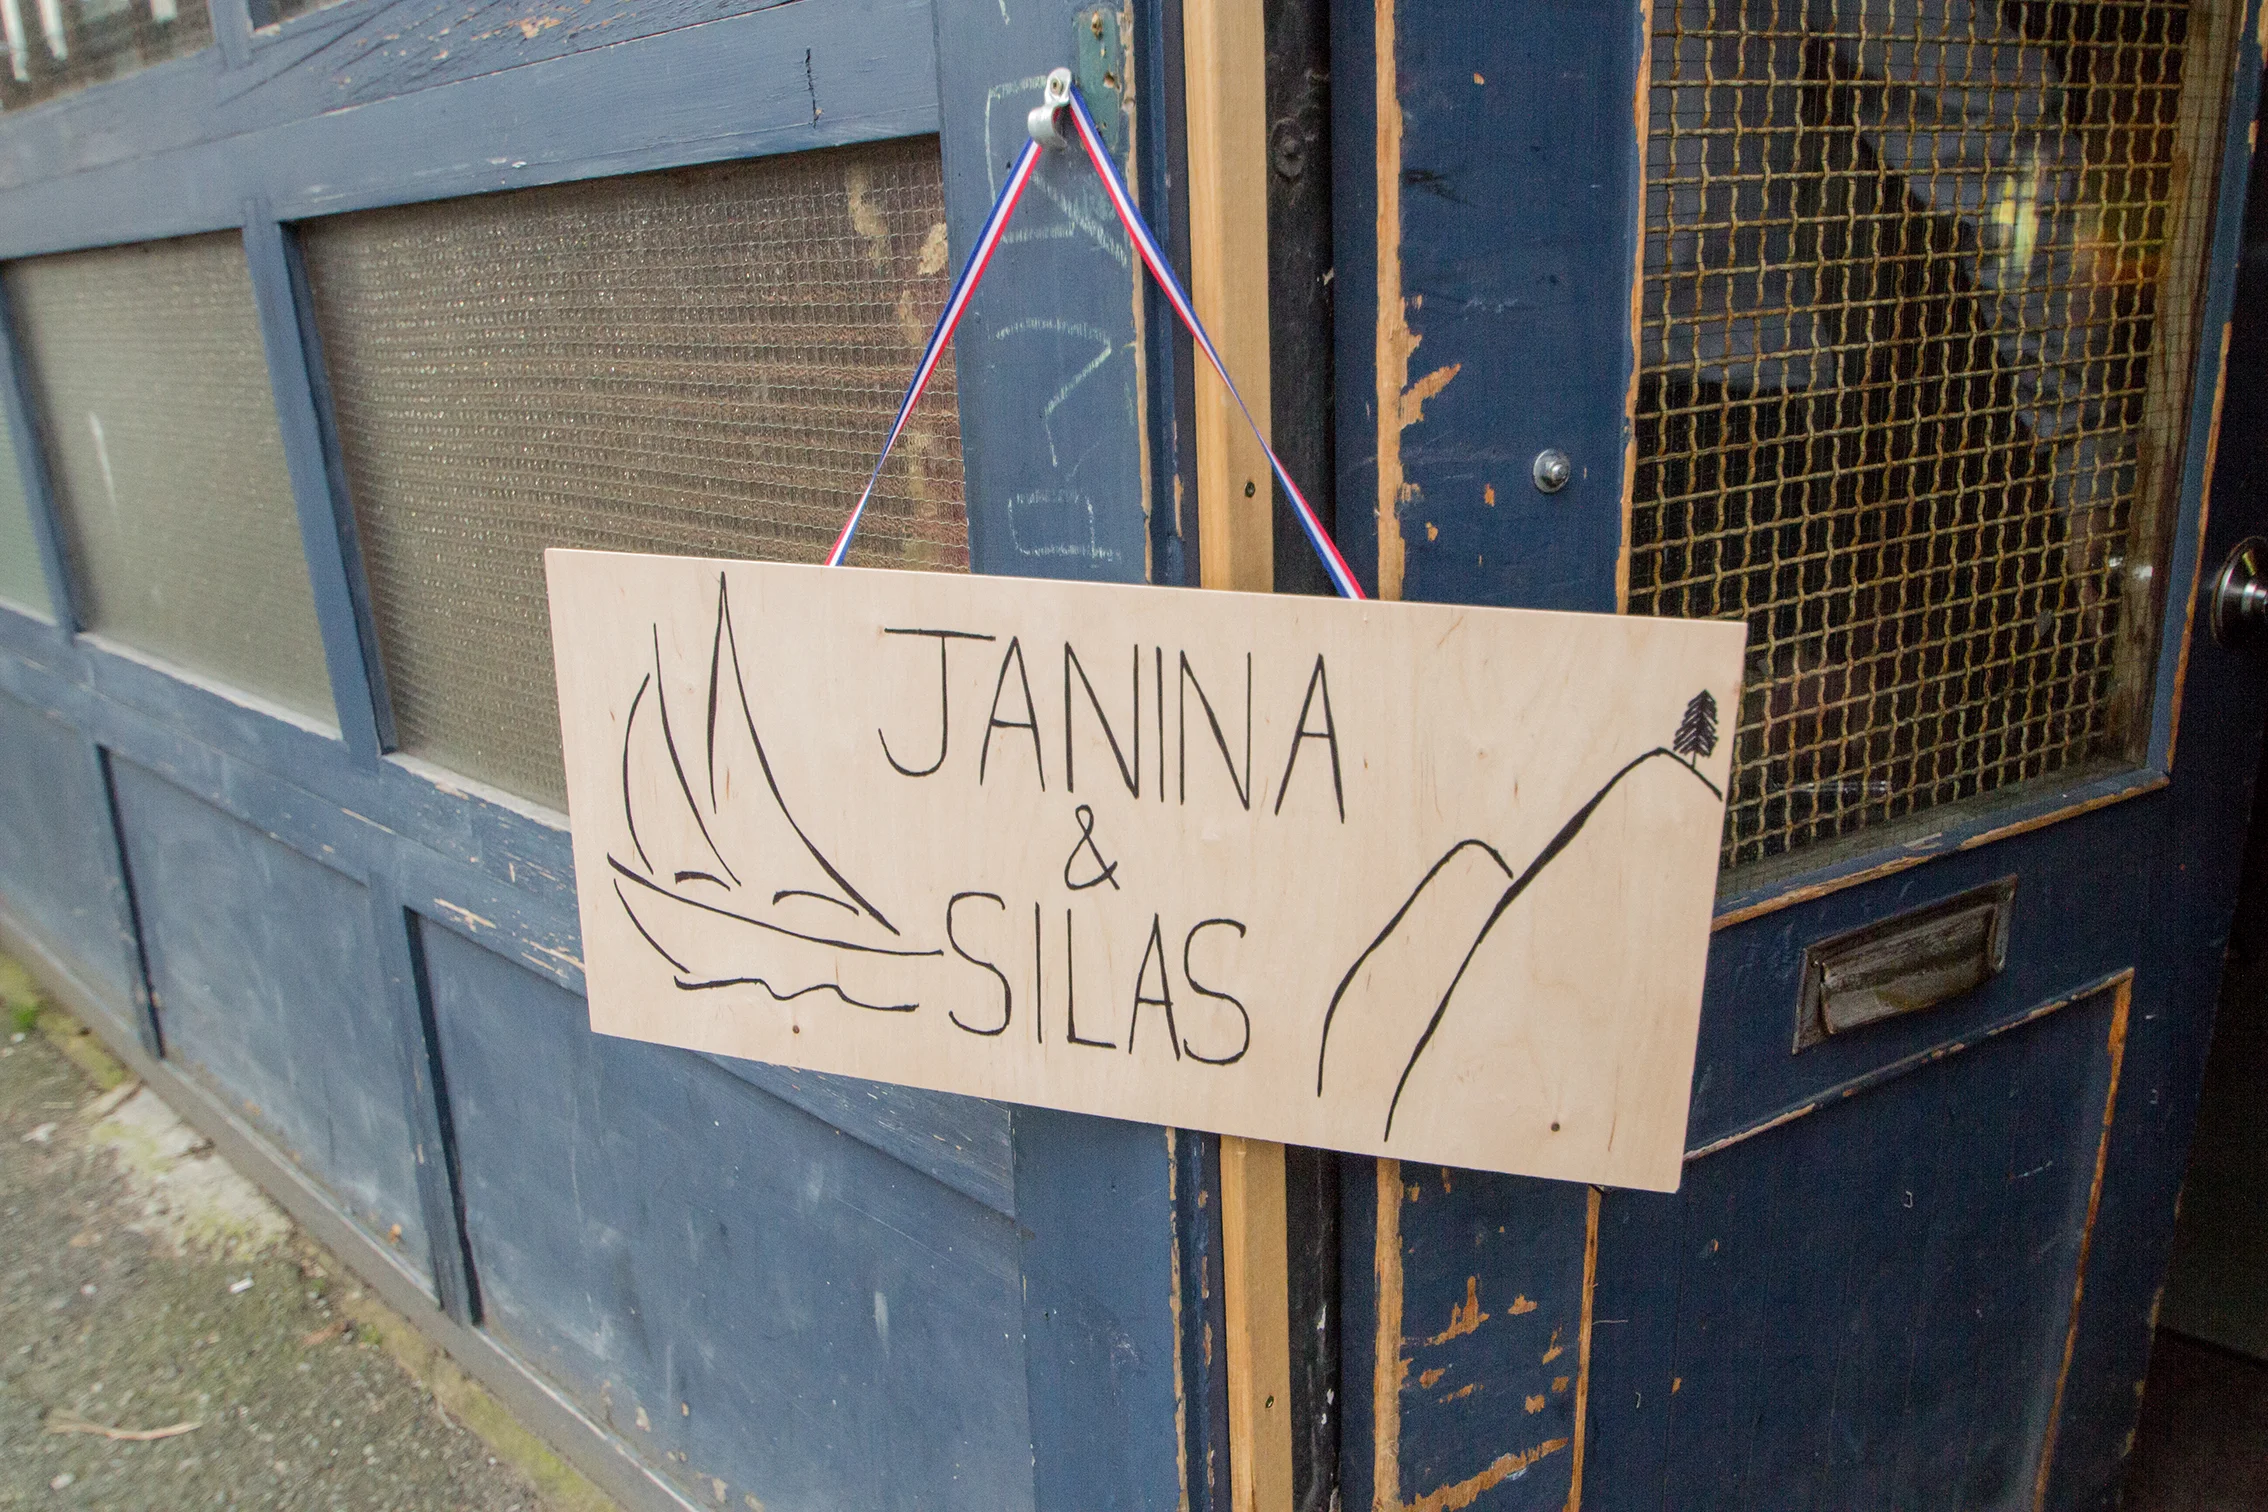 JANINA
&
SILAS